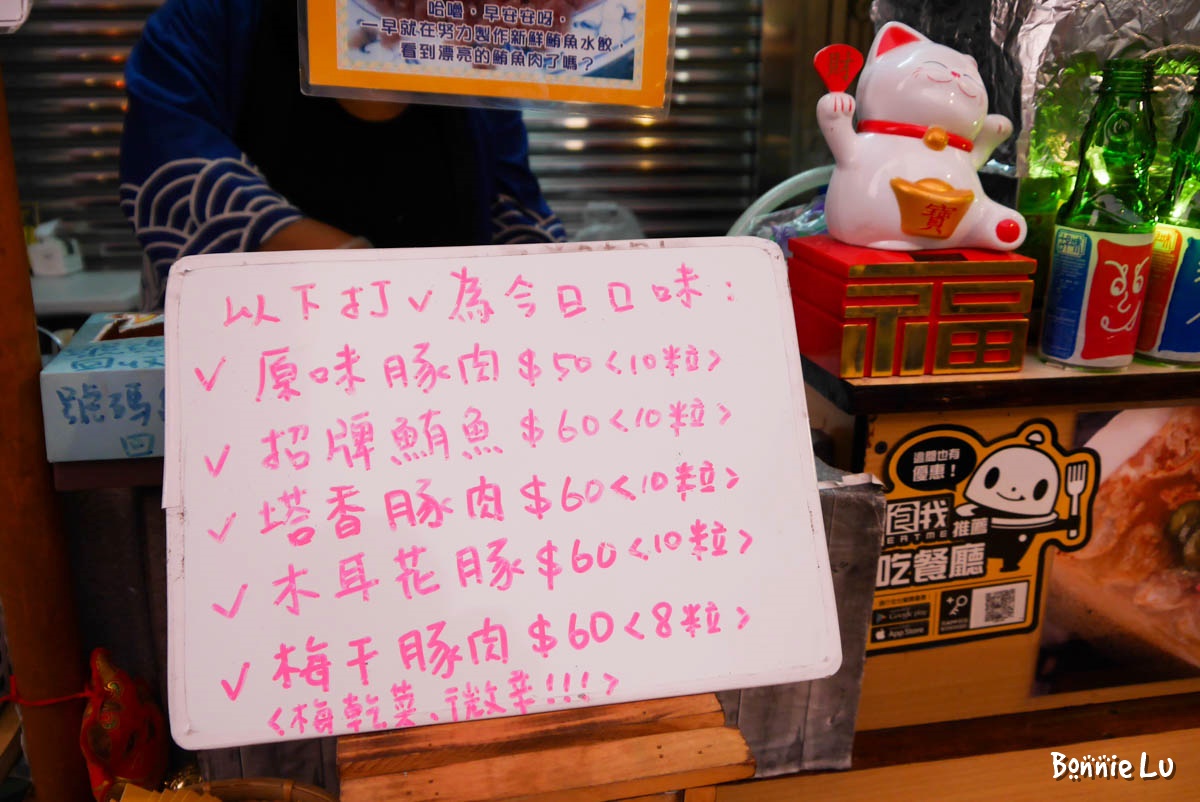 哈嚕,早安安呀,
一早就在努力製作新鮮鮪魚水餃,
看到漂亮的鮪魚肉了嗎?
財
寶
福
以下打✓為今日口味:
✓ 原味豚肉 $50<10粒>
✓ 招牌鮪魚 $60<10粒>
✓ 塔香豚肉 $60<10粒>
✓ 木耳花豚 $60<10粒>
✓ 梅干豚肉 $60<8粒>
<梅乾菜、微辛!!!>
號碼
回
這間也有
優惠!
食我
EATME
推薦
吃餐廳
Google play
App Store
Bonnie Lu